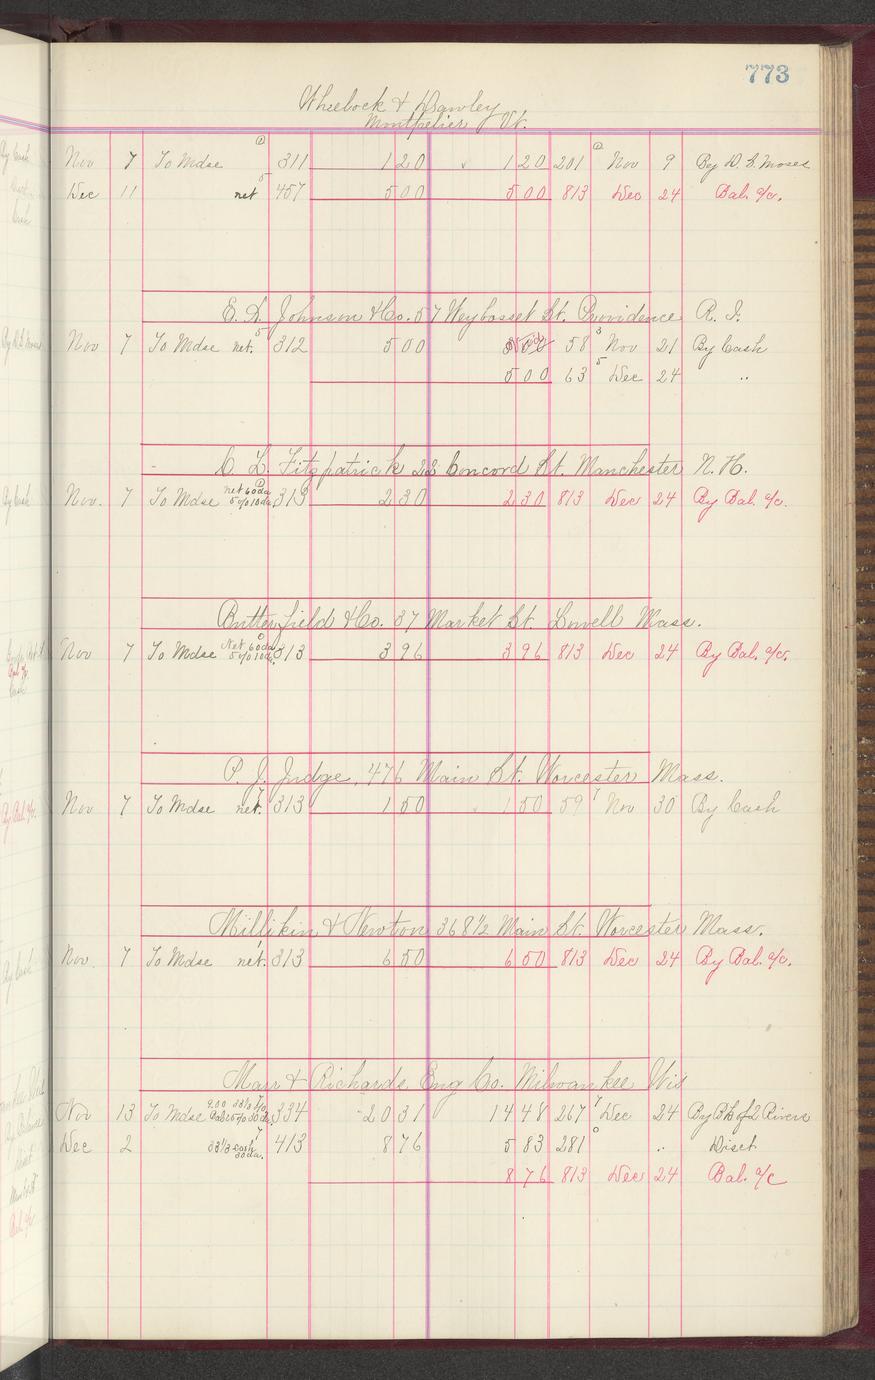 773
Wheelock & Dawley
Montpelier Vt.
Nov 7 To Mdse 311 120 120 201 Nov 9 By D. S. Moses
Dec 11 net 5 457 500 500 813 Dec 24 Bal. a/c.
Johnson & Co. 57 Weybosset St. Providence R. I.
Nov 7 To Mdse net. 5 312 500 58 3 Nov 21 By Cash
500 63 5 Dec 24 "
L. Fitzpatrick 22 Concord St. Manchester N. H.
Nov. 7 To Mdse net 60 da 5% 10 da. 313 230 230 813 Dec 24 By Bal. a/c.
Butterfield & Co. 37 Market St. Lowell Mass.
Nov 7 To Mdse Net 60 da 5% 10 da. 313 396 396 813 Dec 24 By Bal. a/c.
P. J. Judge, 476 Main St. Worcester Mass.
Nov 7 To Mdse net. 7 313 150 150 59 7 Nov 30 By Cash
Millikin & Newton 368 1/2 Main St. Worcester Mass.
Nov. 7 To Mdse net. 1 313 650 650 813 Dec 24 By Bal. a/c.
Marr & Richards Eng Co. Milwaukee Wis
Nov 13 To Mdse 334 2031 1448 267 7 Dec 24 By Bk of 2 Rivers
Dec 2 33 1/3 cash 30 da. 7 413 876 583 281 0 " Disct
876 813 Dec 24 Bal. a/c